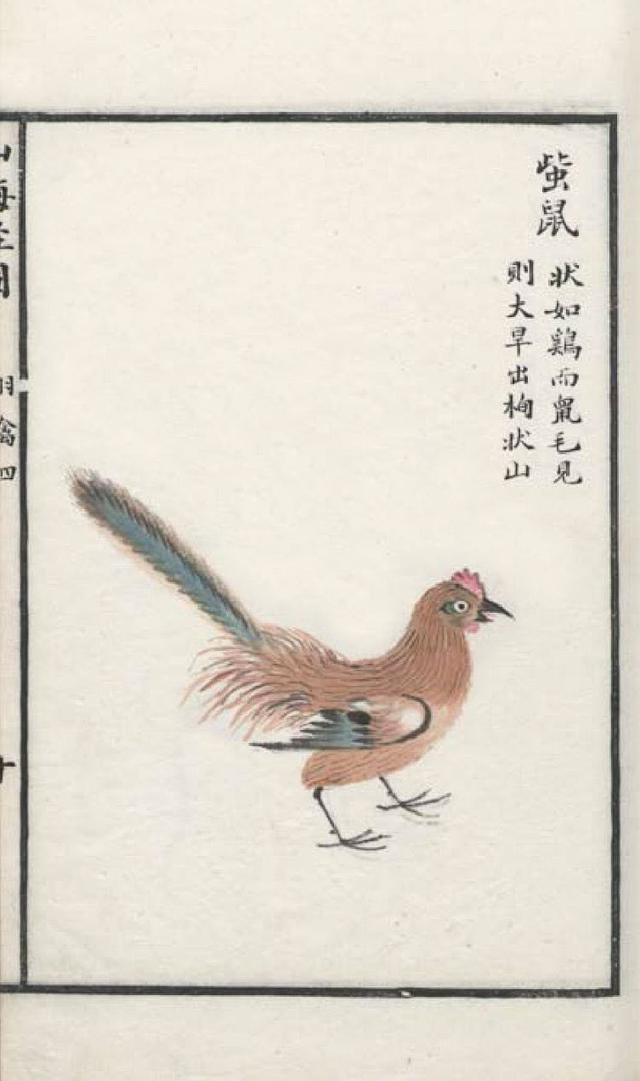 䖪鼠
狀如鷄而鼠毛見
則大旱出栒狀山
山海經圖
羽禽四
十